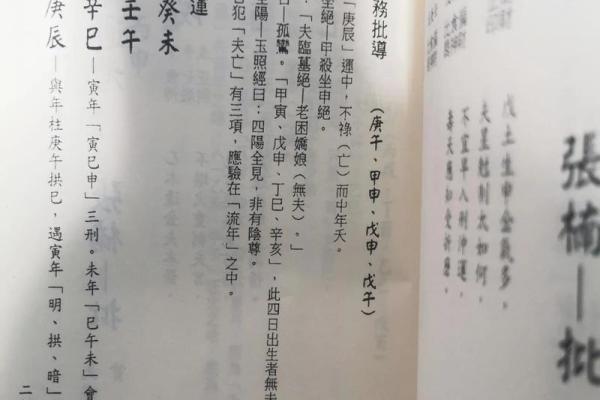 張楠—批
戊土生申金氣多，
夫星尅制太如何，
不宜早入刑沖運，
務批導 （庚午、甲申、戊申、戊午）
「庚辰」運中，不祿（亡）而中年夭。
絕—甲殺坐申絕。
：「夫臨墓絕—老困嬌娘（無夫）。」
—孤鸞。「甲寅、戊申、丁巳、辛亥」，此四日出生者無夫
陽—玉照經曰：四陽全見，非有陰尊。
犯「夫亡」有三項，應驗在「流年」之中。
運
癸未
壬午
辛巳—寅年「寅巳申」三刑。未年「巳午未」會
庚辰—與年柱庚午拱巳，遇寅年「明、拱、暗」
二